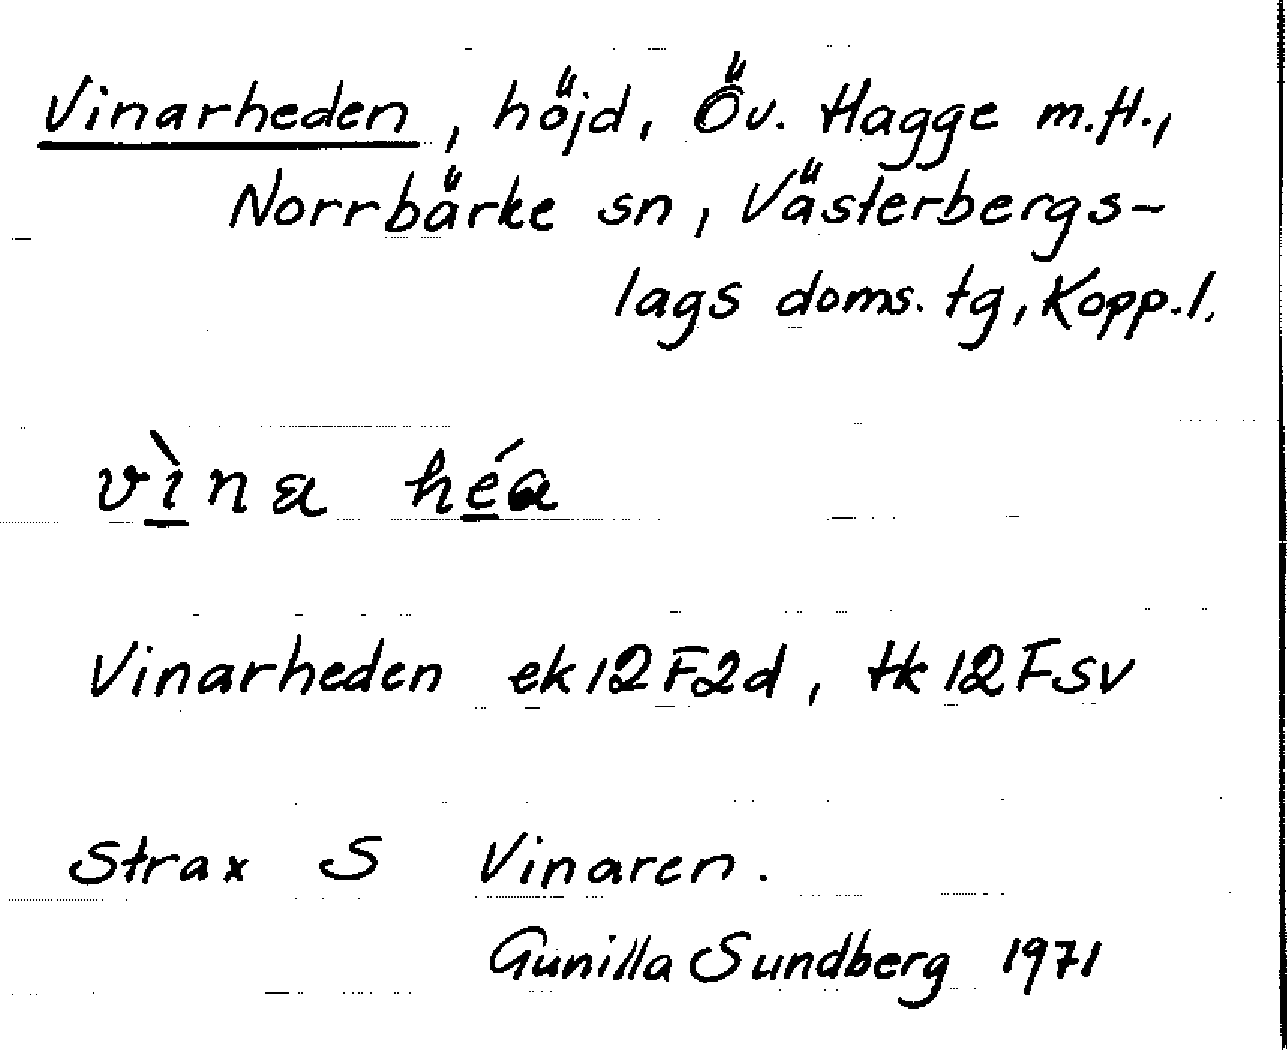 Vinarheden, höjd, Öv. Hagge m.fl.,
Norrbärke sn, Västerbergs-
lags doms. tg, Kopp.l.
vìna héa
Vinarheden ek 12F2d, tk 12Fsv
Strax S Vinaren.
Gunilla Sundberg 1971